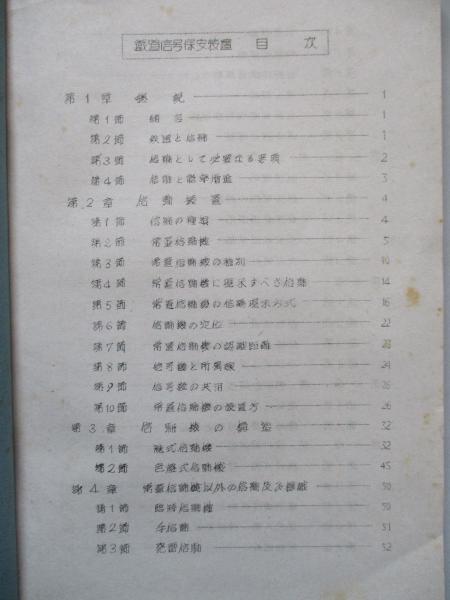 鉄道信号保安装置 目次
第1章 総説 1
第1節 緒言 1
第2節 鉄道と信号 1
第3節 信号として必要なる要項 2
第4節 信号と 3
第2章 信号装置 4
第1節 信号の種類 4
第2節 常置信号機 5
第3節 常置信号機の種別 10
第4節 常置信号機に現示すべき信号 14
第5節 常置信号機の信号現示方式 16
第6節 信号機の定位 22
第7節 常置信号機の認識距離 23
第8節 信号機と所属線 24
第9節 信号機の共用 25
第10節 常置信号機の設置方 26
第3章 信号機の構造 32
第1節 腕式信号機 32
第2節 色燈式信号機 45
第4章 常置信号機以外の信号及び標識 50
第1節 臨時信号機 50
第2節 手信号 51
第3節 発雷信号 52